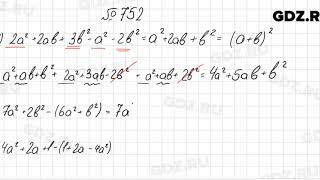 GDZ.R
№752
) 2a² + 2ab + 3b² - a² - 2b² = a² + 2ab + b² = (a+b)²
a² + ab + b² + 2a² + 3ab - 2b² + a² + ab + 2b² = 4a² + 5ab + b²
7a² + 2b² - (6a² + b²) = 7a
4a² + 2a + 1 - (1 + 2a - 4a²)